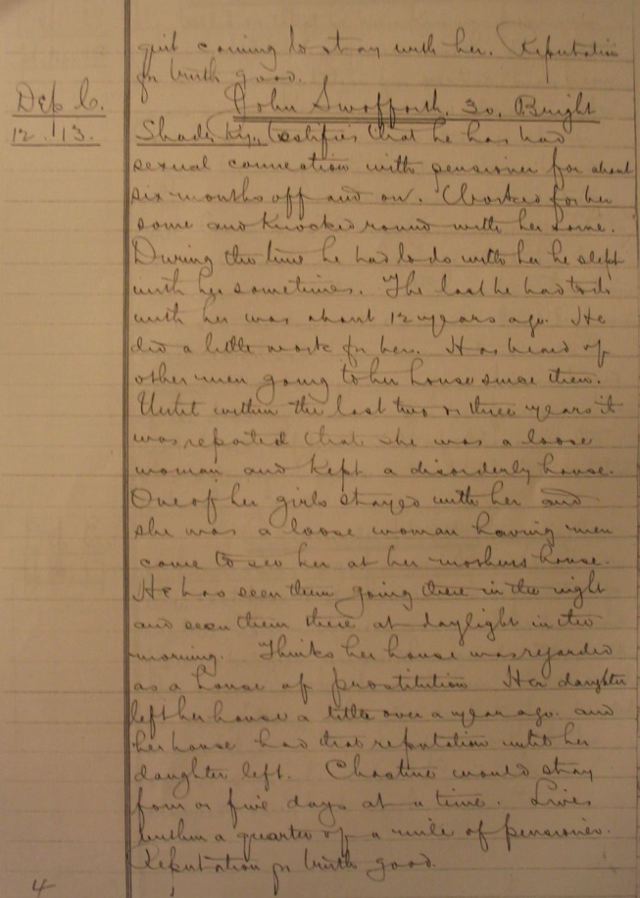 quit coming to stay with her. Reputation
for truth good.
Dep C.
12. 13.
John Swofforth. 30. Bright
Shade, Ky., testifies that he has had
sexual connection with pensioner for about
six months off and on. Worked for her
some and knocked round with her some.
During the time he had to do with her he slept
with her sometimes. The last he had to do
with her was about 12 years ago. He
did a little work for her. Has heard of
other men going to her house since then.
Until within the last two or three years it
was reported that she was a loose
woman and kept a disorderly house.
One of her girls stayed with her and
she was a loose woman having men
come to see her at her mothers house.
He has seen them going there in the night
and seen them there at daylight in the
morning. Thinks her house was regarded
as a house of prostitution Her daughter
left her house a little over a year ago. and
her house had that reputation until her
daughter left. Chastine would stay
four or five days at a time. Lives
within a quarter of a mile of pensioner.
Reputation for truth good.
4